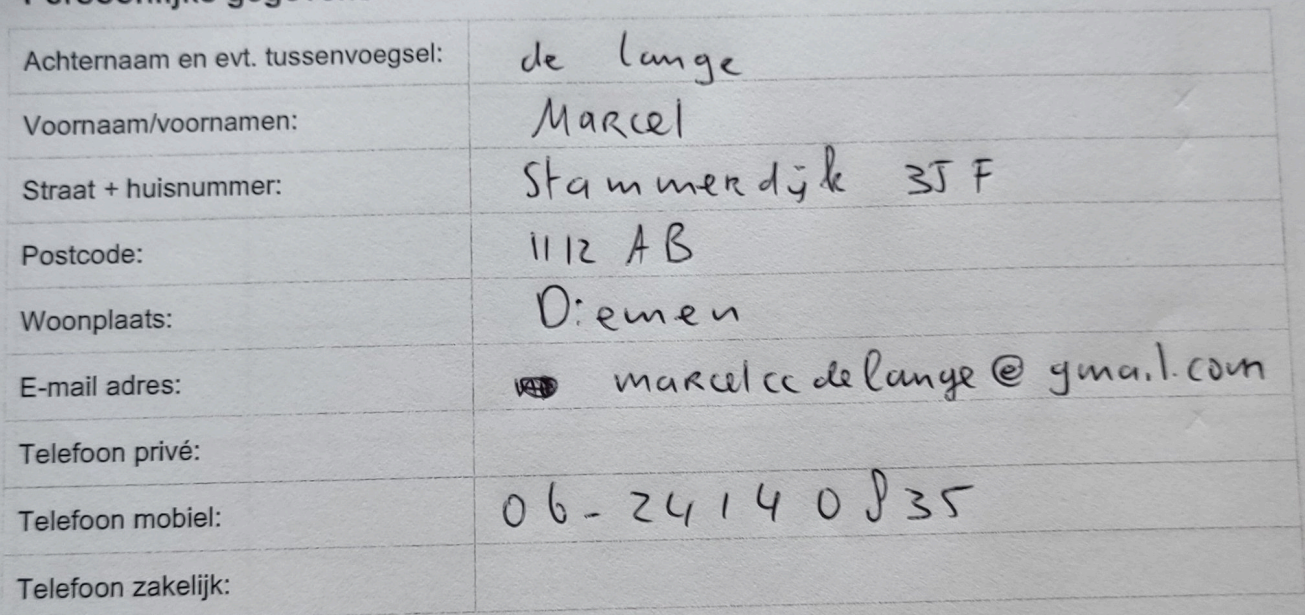 Achternaam en evt. tussenvoegsel: de lange
Voornaam/voornamen: Marcel
Straat + huisnummer: Stammerdijk 35 F
Postcode: 1112 AB
Woonplaats: Diemen
E-mail adres: marcelccdelange@gmail.com
Telefoon privé:
Telefoon mobiel: 06-24140835
Telefoon zakelijk: